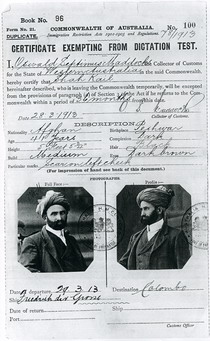 Book No. 96
Form No. 21. COMMONWEALTH OF AUSTRALIA. No. 100
DUPLICATE. Immigration Restriction Acts 1901-1912 and Regulations. 1913
CERTIFICATE EXEMPTING FROM DICTATION TEST.
I, Oswald Septimus Maddocks Collector of Customs
for the State of Western Australia in the said Commonwealth
hereby certify that
hereinafter described, who is leaving the Commonwealth temporarily, will be excepted
from the provisions of paragraph of the Act if he returns to the Com-
monwealth within a period of from this date.
Date 28.3.1913 Collector of Customs
DESCRIPTION.
Nationality Afghan Birthplace Peshawar
Age years Complexion
Height Hair Black
Build Medium Eyes Dark brown
Particular marks Scar on left cheek
(For impression of hand see back of this document.)
PHOTOGRAPHS.
Full Face Profile
Date of departure 29.3.13 Destination Colombo
Ship Friedrich der Grosse
Date of return Ship
Port
Customs Officer